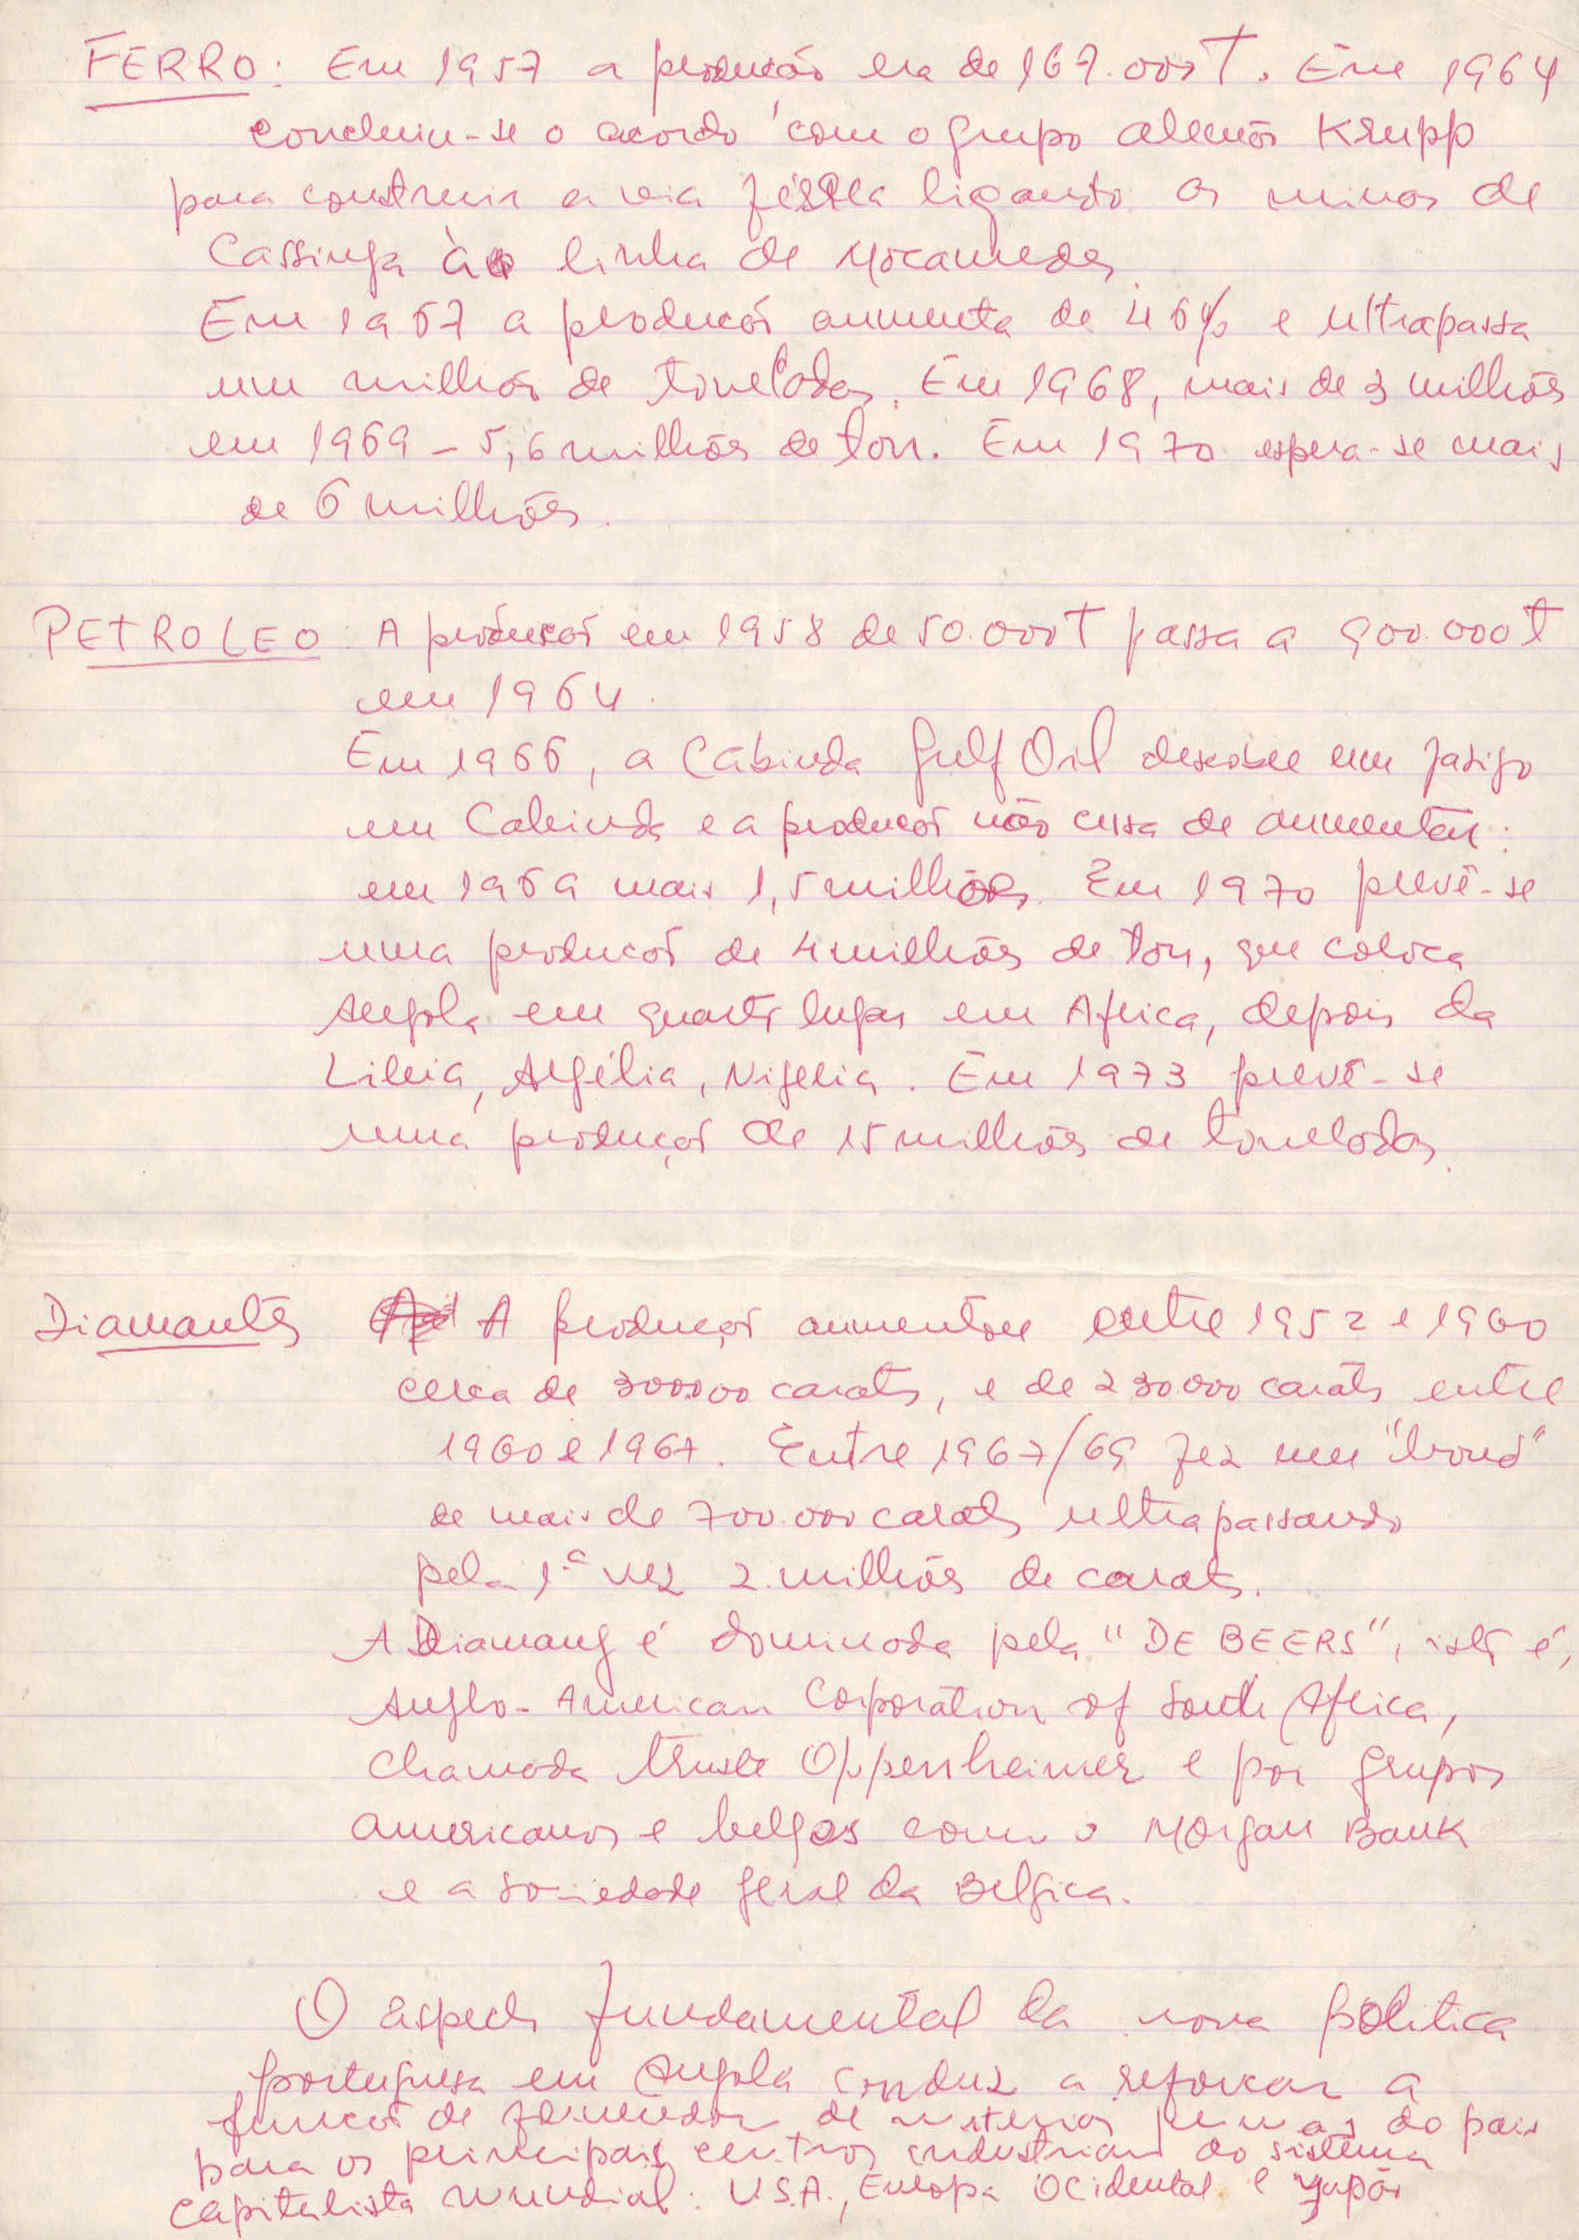 FERRO: Em 1957 a producão era de 167.000T. Em 1964
concluiu-se o acordo com o grupo alemão Krupp
para construir a via férrea ligando as minas de
Cassinga à linha de Mocamedes
Em 1967 a producão aumenta de 46% e ultrapassa
um milhão de toneladas. Em 1968, mais de 3 milhões
em 1969 - 5,6 milhões de ton. Em 1970 espera-se mais
de 6 milhões.
PETROLEO A producão em 1958 de 50.000T passa a 900.000T
em 1964.
Em 1966, a Cabinda Gulf Oil descobre um jasigo
em Cabinda e a producão não cessa de aumentar:
em 1969 mais 1,5 milhões. Em 1970 prevê-se
uma producão de 4 milhões de ton, que coloca
Angola em quarto lugar em Africa, depois da
Libia, Argélia, Nigeria. Em 1973 prevê-se
uma produção de 15 milhões de toneladas.
Diamantes A produção aumentou entre 1952 e 1960
cerca de 300.000 carats, e de 230.000 carats entre
1960 e 1967. Entre 1967/69 fez um "bond"
de mais de 700.000 carats ultrapassando
pela 1ª vez 2 milhões de carats.
A Diamang é dominada pela "DE BEERS", isto é,
Anglo-American Corporation of South Africa,
chamada truste Oppenheimer e por grupos
americanos e belgas como o Morgan Bank
e a Sociedade Geral da Belgica.
O aspecto fundamental da nova politica
portuguesa em Angola conduz a reforcar a
funcão de fornecedor de materias primas do pais
para os principais centros industriais do sistema
capitalista mundial: U.S.A., Europa Ocidental e Japão